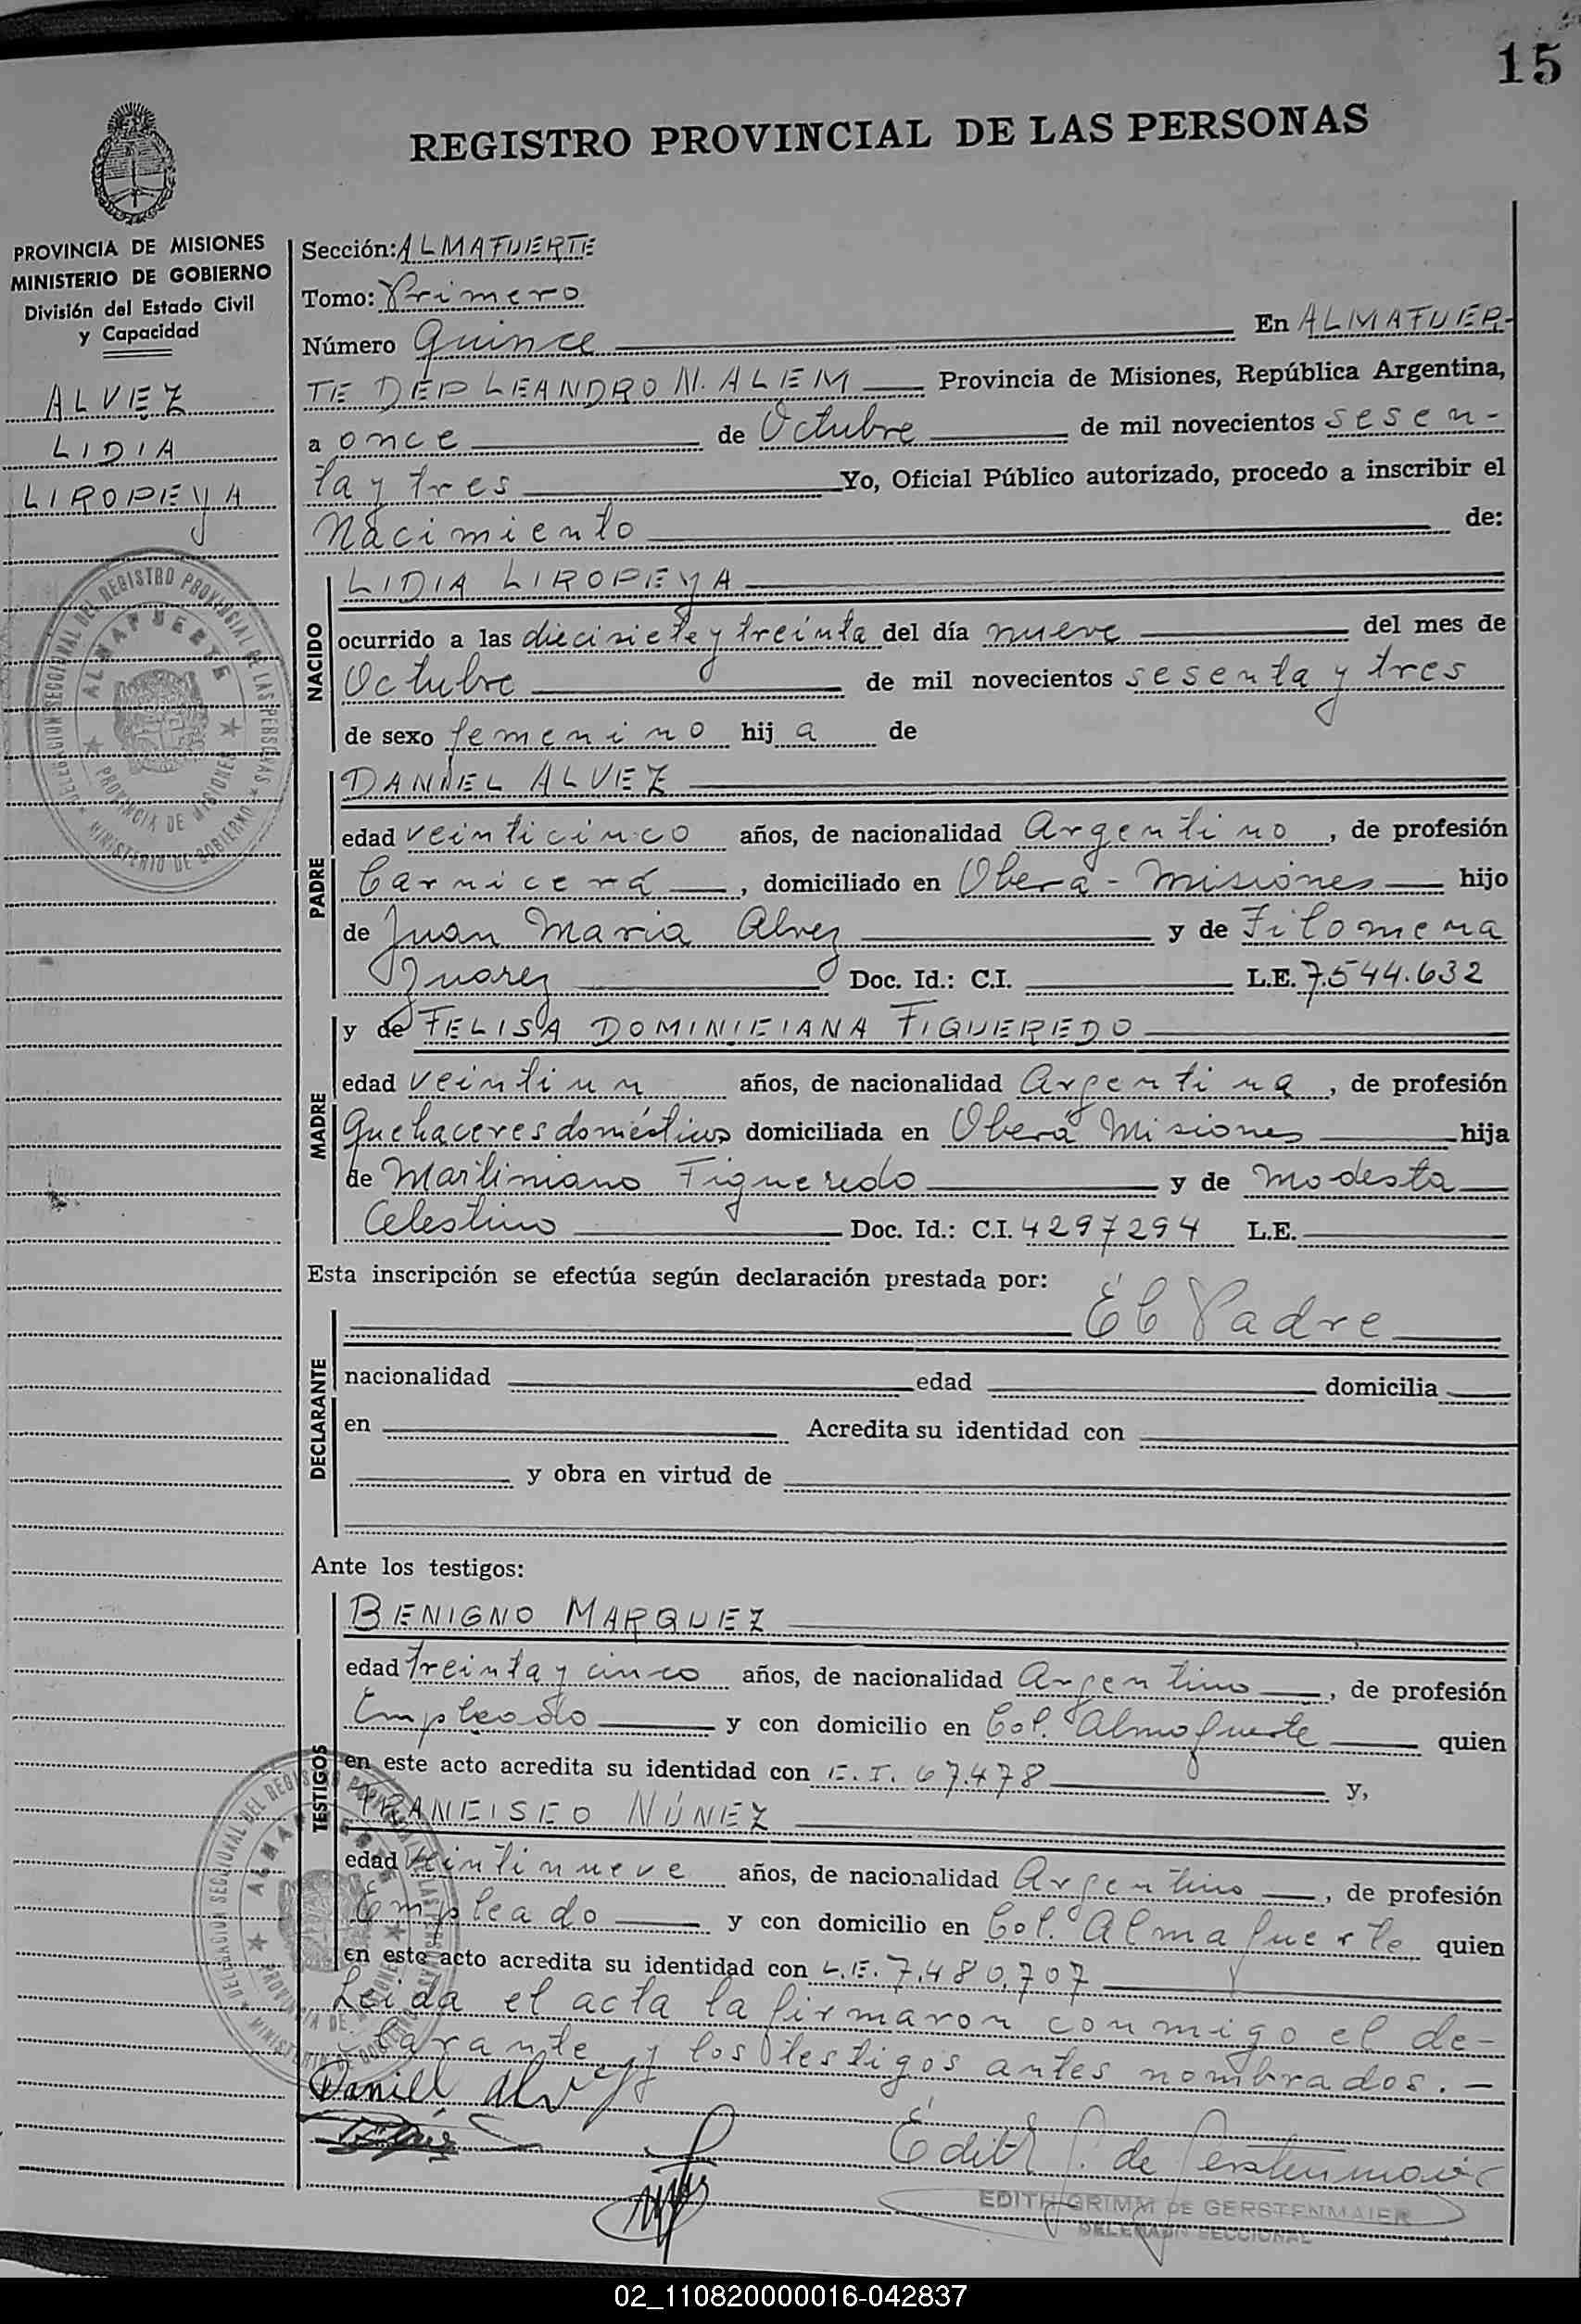 15
REGISTRO PROVINCIAL DE LAS PERSONAS
PROVINCIA DE MISIONES
MINISTERIO DE GOBIERNO
División del Estado Civil
y Capacidad
ALVEZ
LIDIA
LIROPEYA
DELEGACION SECCIONAL DEL REGISTRO PROVINCIAL DE LAS PERSONAS * MINISTERIO DE GOBIERNO *
ALMAFUERTE * PROVINCIA DE MISIONES *
Sección: ALMAFUERTE
Tomo: Primero
Número Quince En ALMAFUER-
TE DEP LEANDRO N. ALEM Provincia de Misiones, República Argentina,
a once de Octubre de mil novecientos sesen-
ta y tres Yo, Oficial Público autorizado, procedo a inscribir el
Nacimiento de:
NACIDO
LIDIA LIROPEYA
ocurrido a las diecisiete y treinta del día nueve del mes de
Octubre de mil novecientos sesenta y tres
de sexo femenino hij a de
PADRE
DANIEL ALVEZ
edad veinticinco años, de nacionalidad Argentino, de profesión
Carnicero, domiciliado en Oberá - Misiones hijo
de Juan Maria Alvez y de Filomena
Juarez Doc. Id.: C.I. L.E. 7.544.632
MADRE
y de FELISA DOMINICIANA FIGUEREDO
edad veintiun años, de nacionalidad Argentina, de profesión
Quehaceres domésticos domiciliada en Oberá Misiones hija
de Martiniano Figueredo y de Modesta
Celestino Doc. Id.: C.I. 4297294 L.E.
Esta inscripción se efectúa según declaración prestada por:
DECLARANTE
El Padre
nacionalidad edad domicilia
en Acredita su identidad con
y obra en virtud de
Ante los testigos:
TESTIGOS
BENIGNO MARQUEZ
edad treinta y cinco años, de nacionalidad Argentino, de profesión
Empleado y con domicilio en Col. Almafuerte quien
en este acto acredita su identidad con C.I. 67.478 y,
FRANCISCO NÚNEZ
edad veintinueve años, de nacionalidad Argentino, de profesión
Empleado y con domicilio en Col. Almafuerte quien
en este acto acredita su identidad con L.E. 7.480.707
Leida el acta la firmaron conmigo el de-
clarante y los testigos antes nombrados. -
DELEGACION SECCIONAL DEL REGISTRO PROVINCIAL DE LAS PERSONAS * MINISTERIO DE GOBIERNO *
ALMAFUERTE * PROVINCIA DE MISIONES *
Daniel Alvez
Edith G. de Gerstenmaier
EDITH GRIMM DE GERSTENMAIER
DELEGADA SECCIONAL
02_110820000016-042837